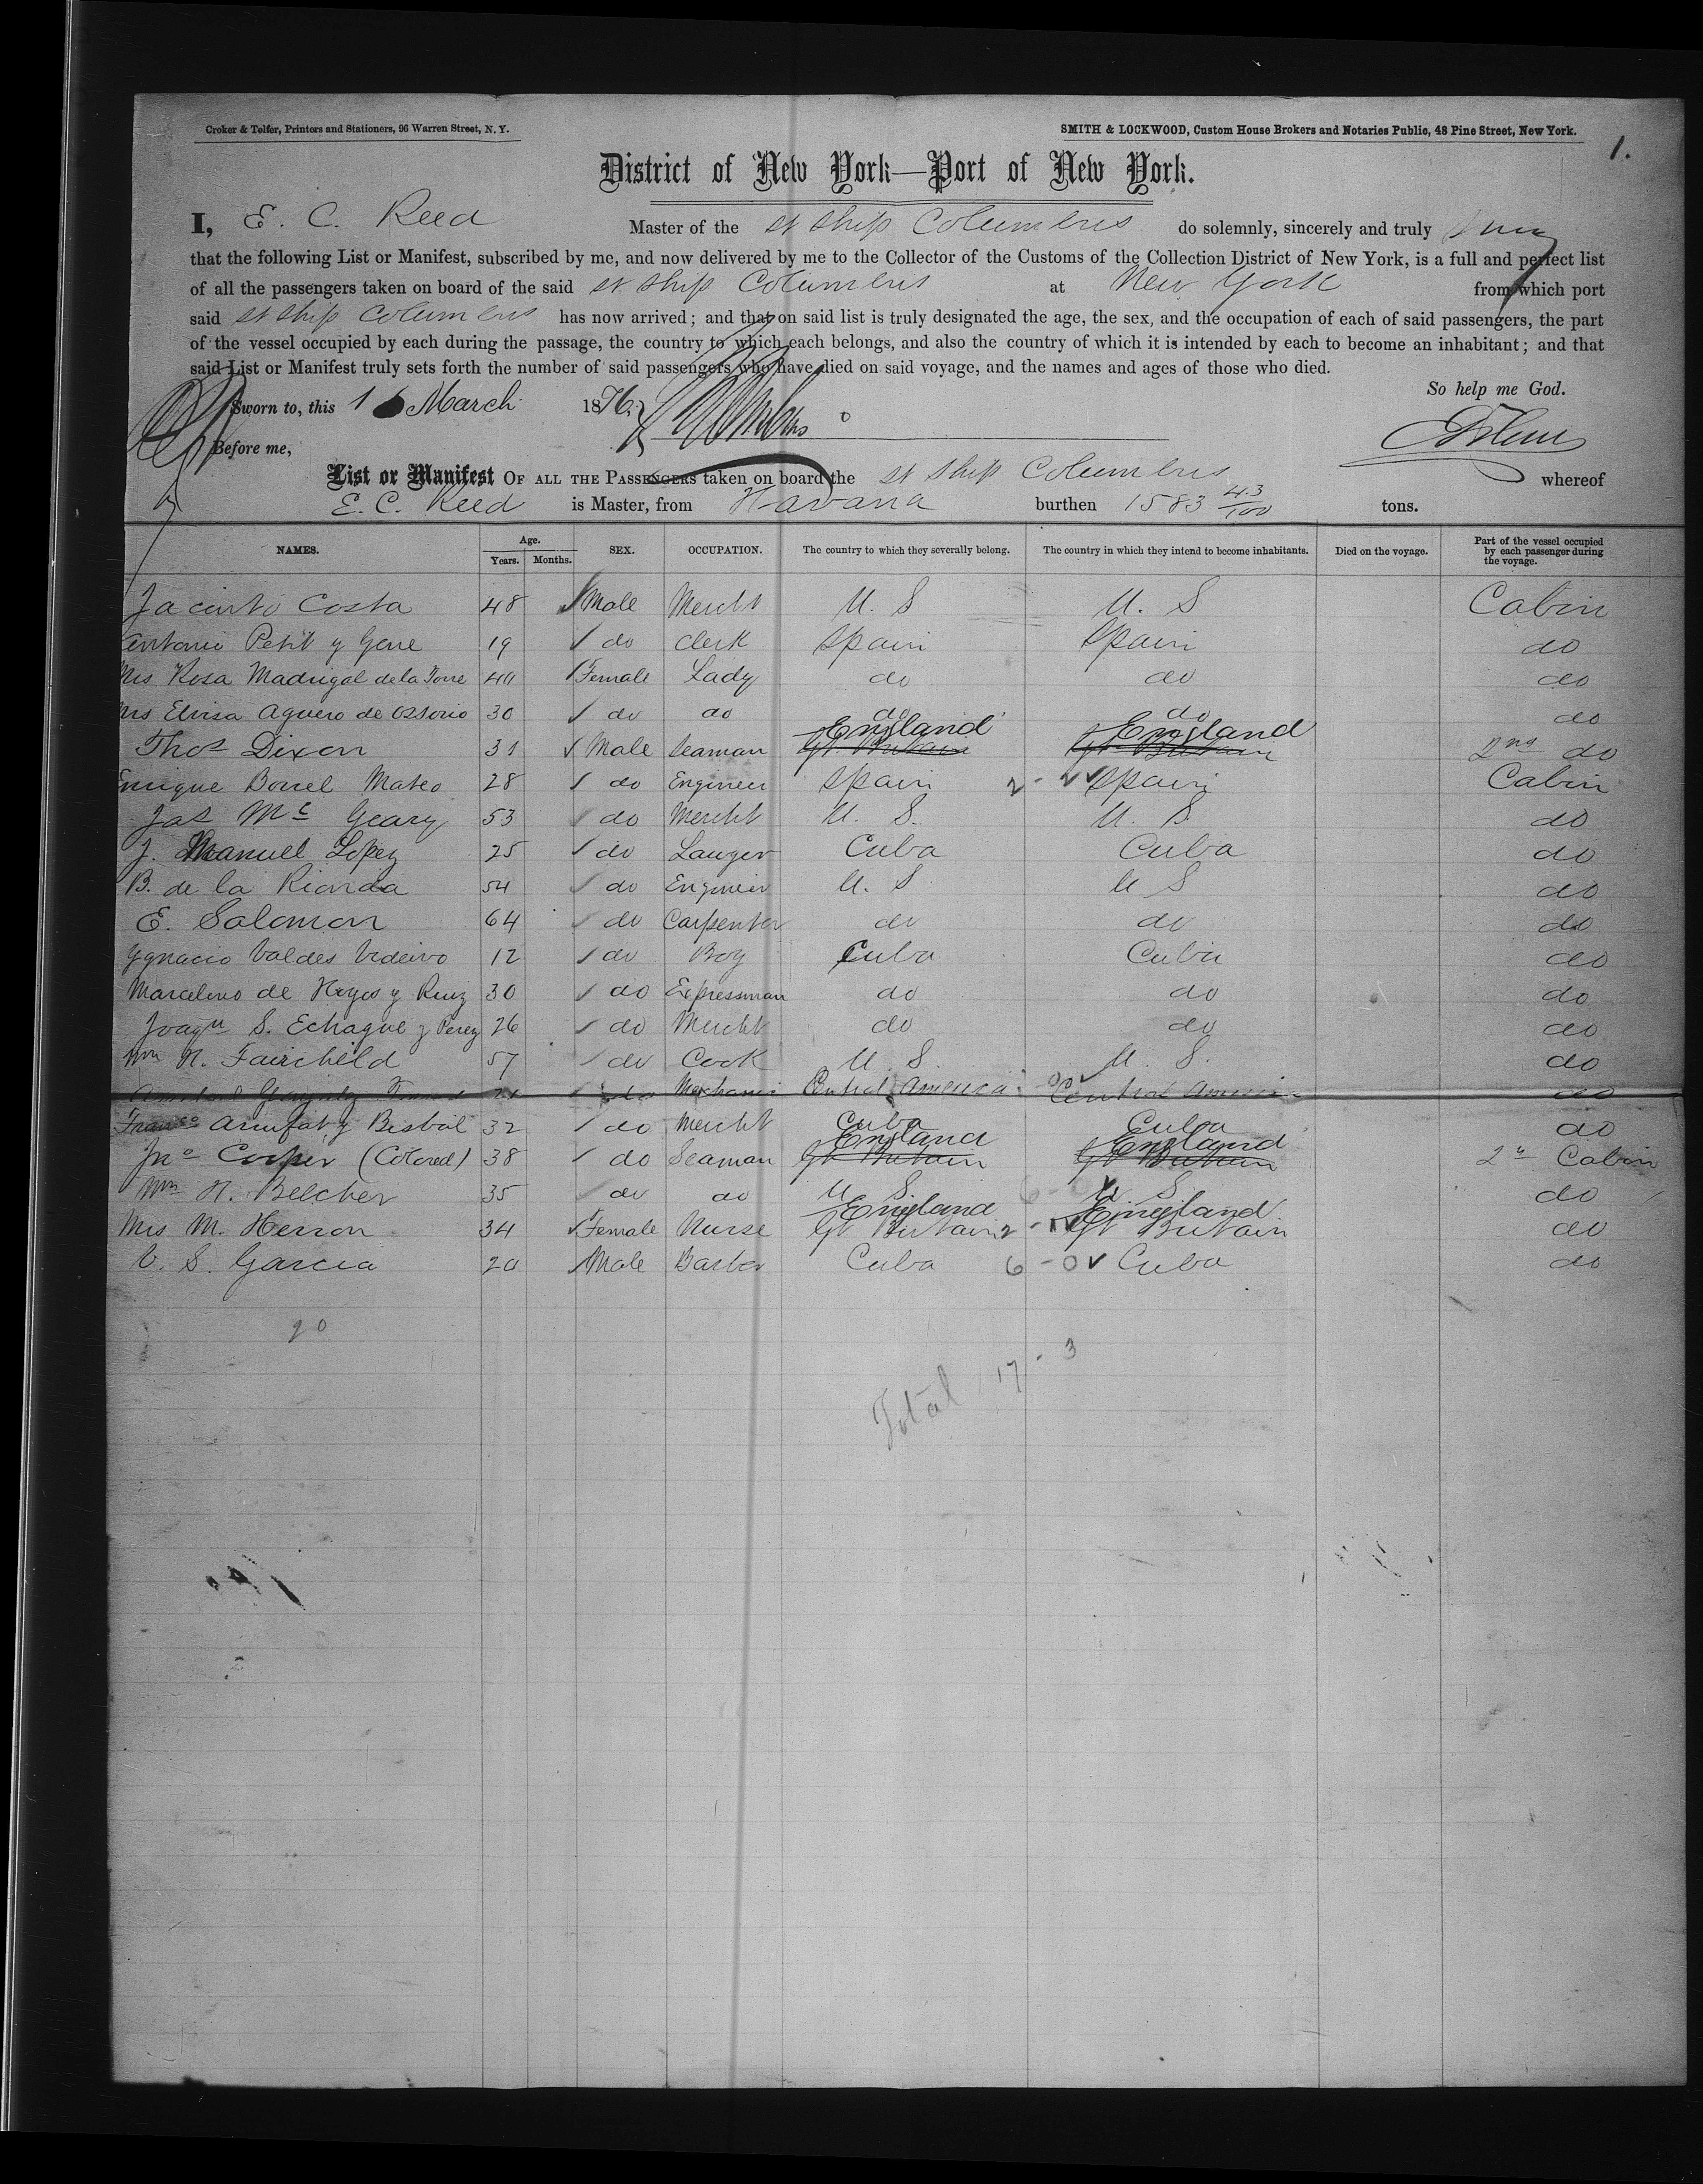 Croker & Telfer, Printers and Stationers, 96 Warren Street, N. Y.
SMITH & LOCKWOOD, Custom House Brokers and Notaries Public, 48 Pine Street, New York.
1.
District of New York—Port of New York.
I, E. C. Reed Master of the St Ship Columbus do solemnly, sincerely and truly
that the following List or Manifest, subscribed by me, and now delivered by me to the Collector of the Customs of the Collection District of New York, is a full and perfect list
of all the passengers taken on board of the said St Ship Columbus at New York from which port
said St Ship Columbus has now arrived; and that on said list is truly designated the age, the sex, and the occupation of each of said passengers, the part
of the vessel occupied by each during the passage, the country to which each belongs, and also the country of which it is intended by each to become an inhabitant; and that
said List or Manifest truly sets forth the number of said passengers who have died on said voyage, and the names and ages of those who died.
So help me God.
Sworn to, this 16 March 1876
Before me,
List or Manifest OF ALL THE PASSENGERS taken on board the St Ship Columbus whereof
E. C. Reed is Master, from Havana burthen 1583 43/100 tons.
NAMES. Age. Years. Months. SEX. OCCUPATION. The country to which they severally belong. The country in which they intend to become inhabitants. Died on the voyage. Part of the vessel occupied by each passenger during the voyage.
Jacinto Costa 48 Male Mercht U. S U. S Cabin
Antonio Petit y Gene 19 do Clerk Spain Spain do
Mrs Rosa Madrigal de la Torre 40 Female Lady do do do
Mrs Elvisa Aguero de Ossorio 30 do do do do do
England England
Thos Dixon 31 Male Seaman Gt Britain Gt Britain 2nd do
Enrique Borrel Mateo 28 do Engineer Spain 2 - Spain Cabin
Jas Mc Geary 53 do Mercht U. S. U. S do
J. Manuel Lopez 25 do Lawyer Cuba Cuba do
B. de la Rionda 54 do Engineer U. S U S do
E. Salomon 64 do Carpenter do do do
Ygnacio Valdes 12 do Boy Cuba Cuba do
Marcelino de Hoyos y Ruiz 30 do Expressman do do do
Joaqn S. Echague y Perez 26 do Mercht do do do
Wm N. Fairchild 57 do Cook U. S U. S. do
do Mechanic Central America Central America do
Franco Armfat y Bisbal 32 do Mercht Cuba Cuba do
England England
Jno Cooper (Colored) 38 do Seaman Gt Britain Gt Britain 2d Cabin
Wm H. Belcher 35 do do U S. U S. do
England England
Mrs M. Herron 34 Female Nurse Gt Britain Gt Britain do
C. S. Garcia 20 Male Barber Cuba 6 - 0 Cuba do
20
Total 17 - 3